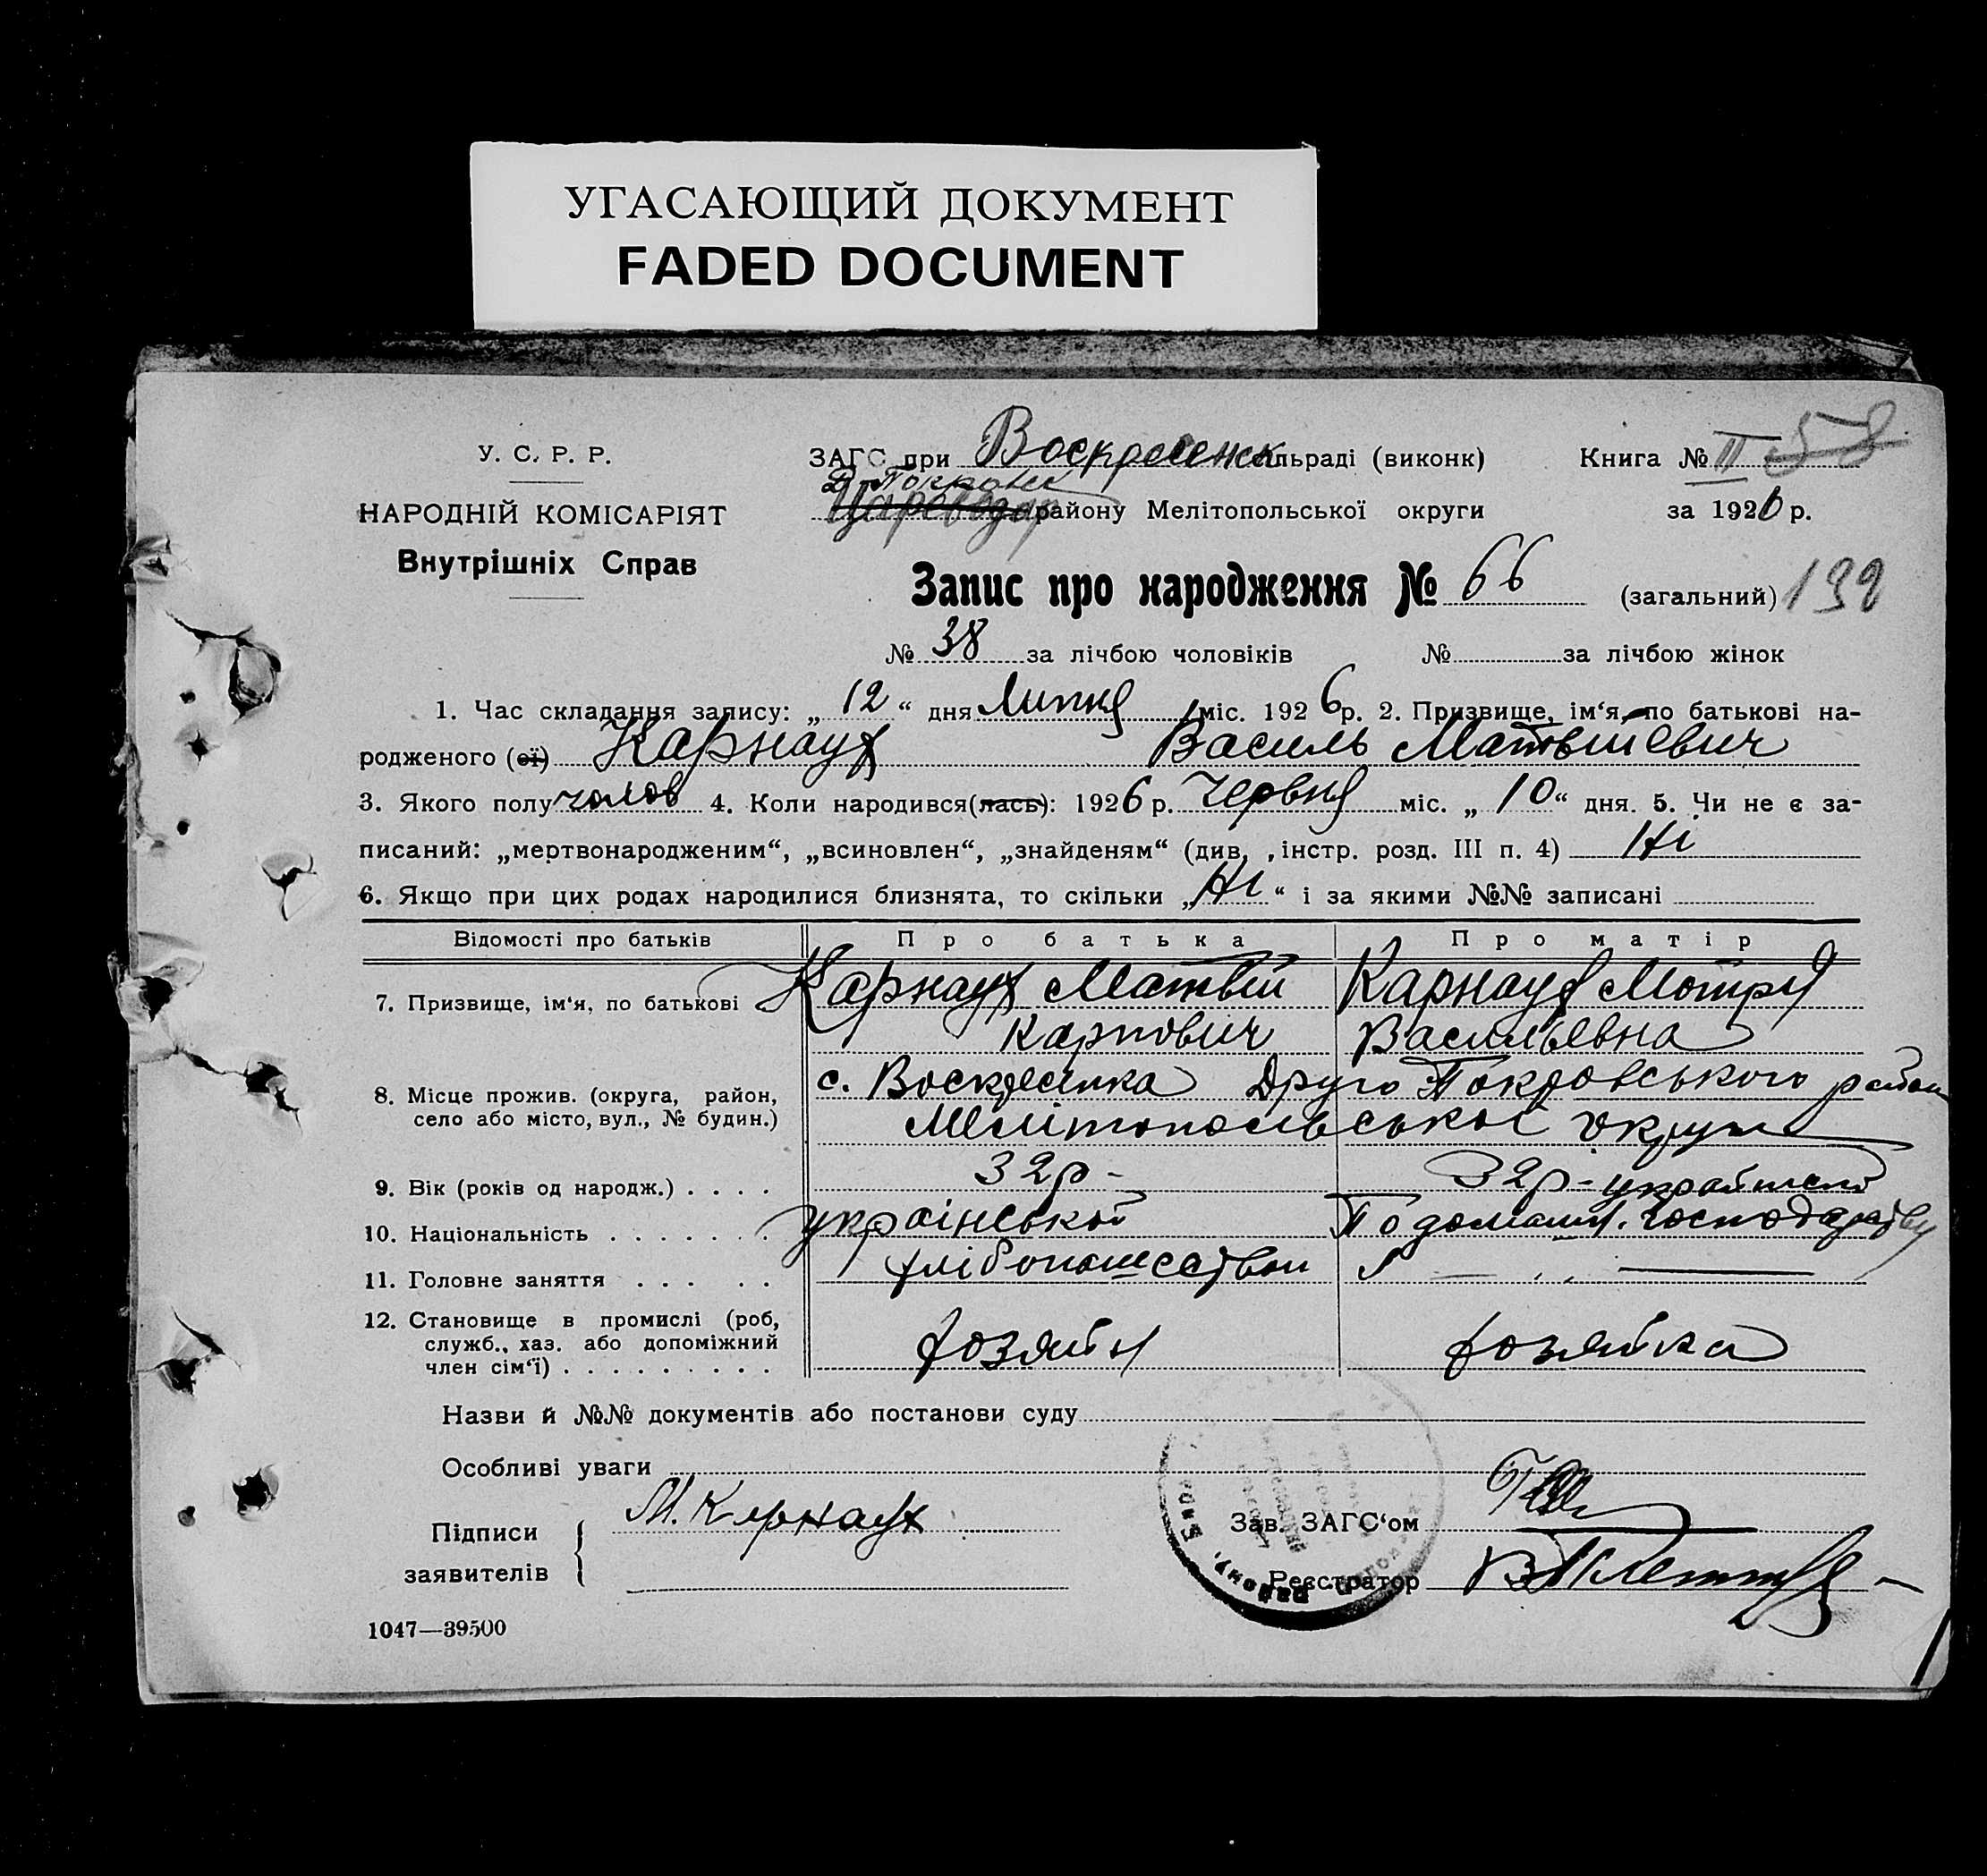 УГАСАЮЩИЙ ДОКУМЕНТ
FADED DOCUMENT
У. С. Р. Р.
НАРОДНІЙ КОМІСАРІЯТ
Внутрішніх Справ
ЗАГС при Воскресенськ ільраді (виконк)
Д-Покровс
Цареводар району Мелітопольської округи
Книга № II 58
за 1926 р.
Запис про народження № 66 (загальний) 132
№ 38 за лічбою чоловіків № за лічбою жінок
1. Час складання запису: „ 12 “ дня Липня міс. 1926 р. 2. Призвище, ім‘я, по батькові на-
родженого (ої) Карнаух Василь Матвиевич
3. Якого полу чолов 4. Коли народився(лась): 1926 р. Червня міс. „ 10 “ дня. 5. Чи не є за-
писаний: „мертвонародженим“, „всиновлен“, „знайденям“ (див. „інстр. розд. III п. 4) Ні
6. Якщо при цих родах народилися близнята, то скільки „ Ні “ і за якими №№ записані
Відомості про батьків Про батька Про матір
7. Призвище, ім‘я, по батькові Карнаух Матвій Карнаух Мотря
Карпович Васильевна
8. Місце прожив. (округа, район, с. Воскресинка Друго Покровського район
село або місто, вул., № будин.) Мелітопольської округи
9. Вік (років од народж.) . . . . 32р- 32р- української
10. Національність . . . . . . . української По домашн. господарству
11. Головне заняття . . . . . хлібопашеством
12. Становище в промислі (роб,
служб., хаз. або допоміжний хозяйн хозяйка
член сім‘ї) . . . . . . . . .
Назви й №№ документів або постанови суду
Особливі уваги
Підписи
заявителів
М. Карнаух
Зав. ЗАГС‘ом
Реєстратор
1047—39500